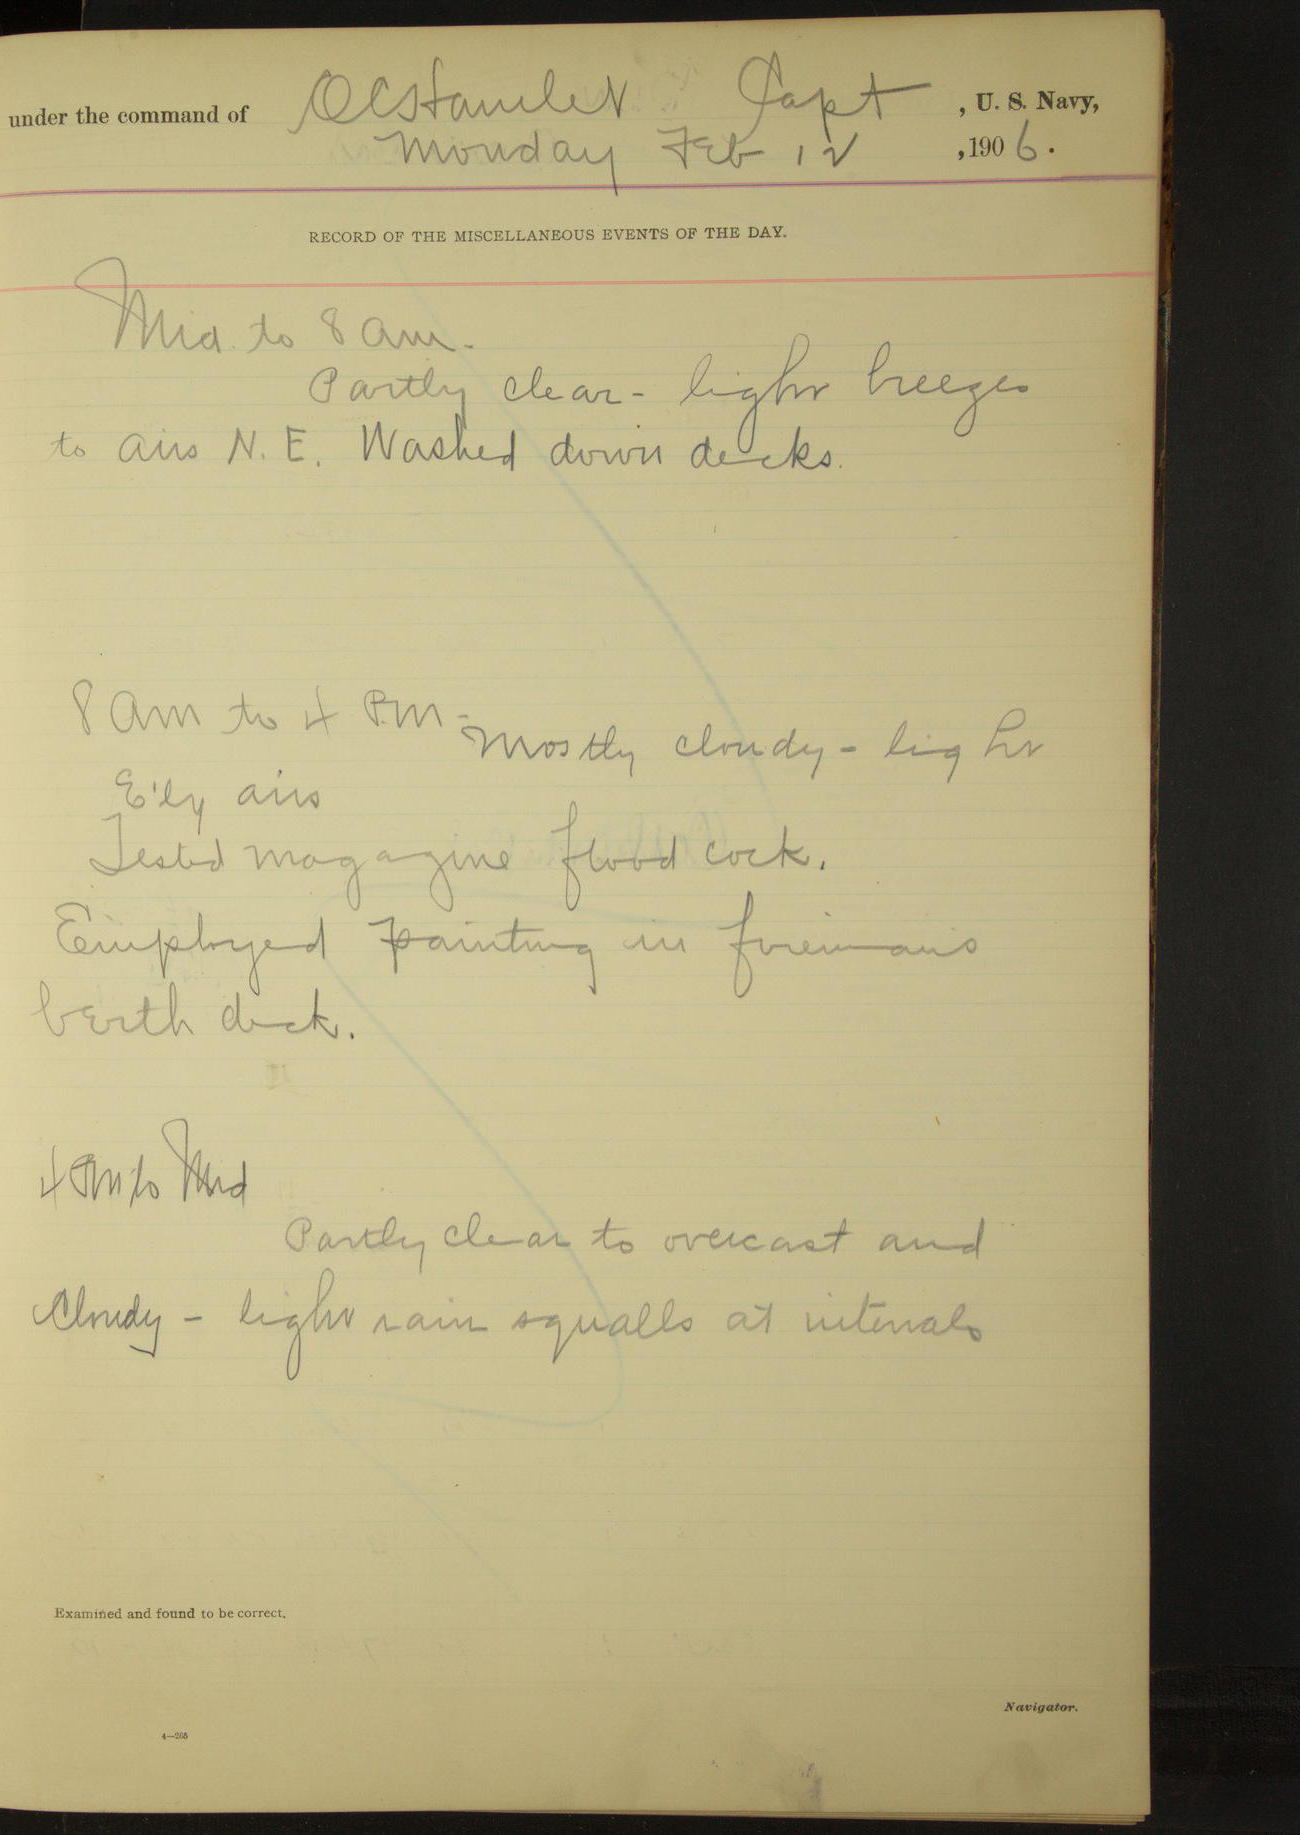 under the command of O C Hamlet Capt , U. S. Navy,
Monday Feb 12 , 1906.
RECORD OF THE MISCELLANEOUS EVENTS OF THE DAY.
Mid. to 8 am.
Partly clear - light breezes
to airs N. E. Washed down decks.
8 am to 4 P.m -
Mostly cloudy - light
E'ly airs
Tested magazine flood cock.
Employed painting in fireman's
berth deck.
4 Pm to Mid
Partly clear to overcast and
cloudy - light rain squalls at intervals
Examined and found to be correct.
Navigator.
4—265